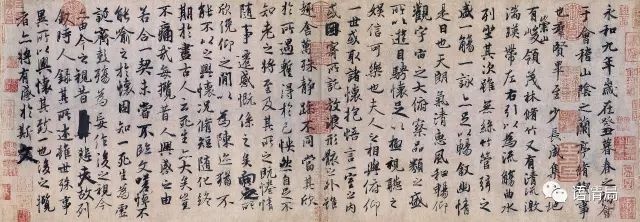 永和九年歲在癸丑暮春之初會
于會稽山陰之蘭亭脩稧事
也群賢畢至少長咸集此地
有崇山峻領茂林脩竹又有清流激
湍暎帶左右引以為流觴曲水
列坐其次雖無絲竹管弦之
盛一觴一詠亦足以暢敘幽情
是日也天朗氣清惠風和暢仰
觀宇宙之大俯察品類之盛
所以遊目騁懷足以極視聽之
娛信可樂也夫人之相與俯仰
一世或取諸懷抱悟言一室之內
或因寄所託放浪形骸之外雖
趣舍萬殊靜躁不同當其欣
於所遇蹔得於己怏然自足不
知老之將至及其所之既惓情
隨事遷感慨係之矣向之所
欣俛仰之間以為陳迹猶不
能不以之興懷況脩短隨化終
期於盡古人云死生亦大矣豈
不痛哉每攬昔人興感之由
若合一契未嘗不臨文嗟悼不
能喻之於懷固知一死生為虛
誕齊彭殤為妄作後之視今
亦由今之視昔悲夫故列
敘時人錄其所述雖世殊事
異所以興懷其致一也後之攬
者亦將有感於斯文
语情局